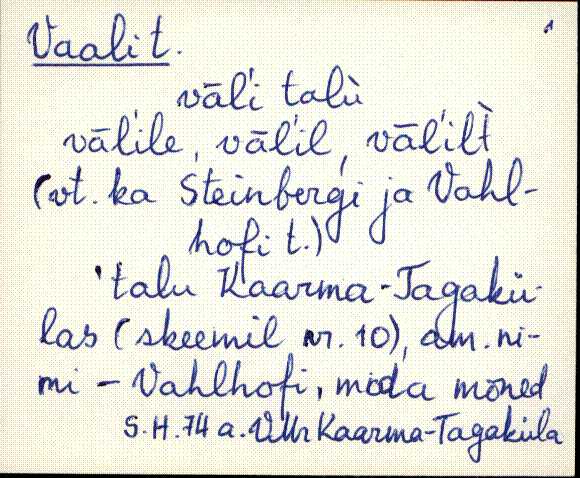 Vaali t. 1
vāĺi talù
vāĺile, vāĺil, vāĺilt̀
(vt. ka Steinbergi ja Vahl-
hofi t.)
talu Kaarma-Tagakü-
las (skeemil nr. 10), am. ni-
mi - Vahlhofi, mida mõned
S.H. 74 a. VMr Kaarma-Tagaküla